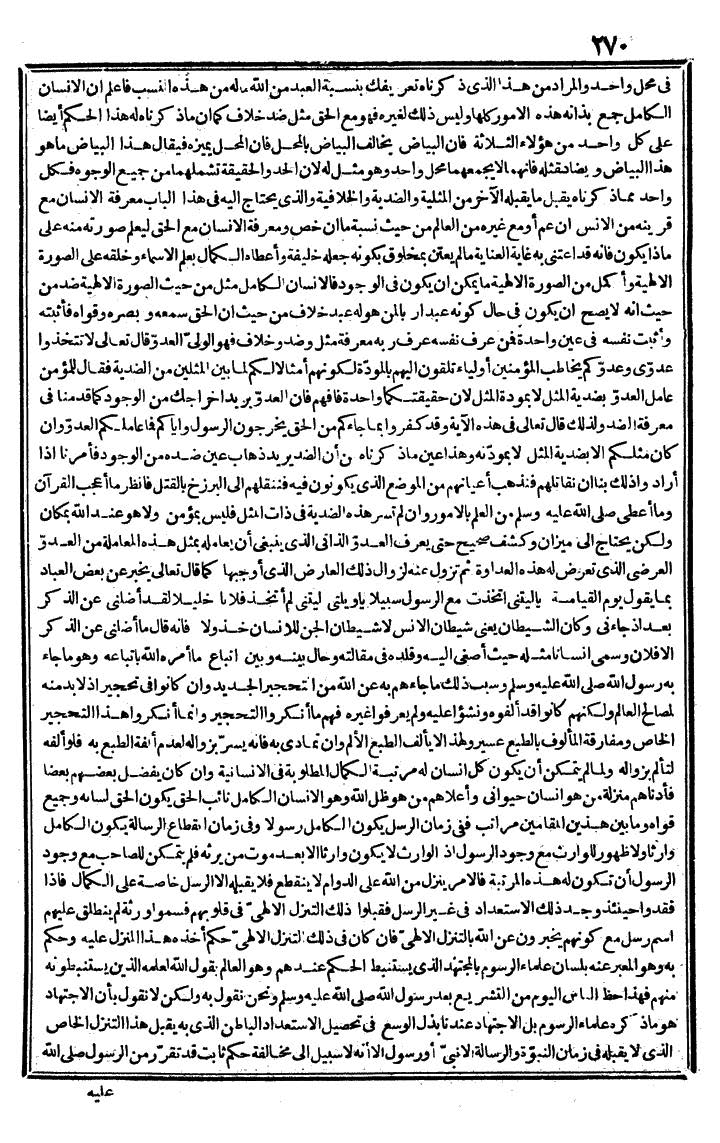 ٢٧٠
فى محل واحد والمراد من هذا الذى ذكرناه تعريفك بنسبة العبد من الله ماله من هذه النسب فاعلم ان الانسان
الكامل جمع بذاته هذه الامور كلها وليس ذلك لغيره فهو مع الحق مثل ضد خلاف كما ان ماذكرناه له هذا الحكم أيضا
على كل واحد من هؤلاء الثلاثة فان البياض يخالف البياض بالمحل فان المحل يميزه فيقال هذا البياض ماهو
هذا البياض ويضاد مثله فانهما لا يجمعهما محل واحد وهو مثل له لان الحد والحقيقة تشملهما من جميع الوجوه فكل
واحد مماذكرناه يقبل ما يقبله الآخر من المثلية والضدية والخلافية والذى يحتاج اليه فى هذا الباب معرفة الانسان مع
قرينه من الانس ان عم أو مع غيره من العالم من حيث نسبة ما ان خص ومعرفة الانسان مع الحق ليعلم صورته منه على
ماذا يكون فانه قد اعتنى به غاية العناية مالم يعتن بمخلوق بكونه جعله خليفة وأعطاه الكمال بعلم الاسماء وخلقه على الصورة
الالهية وأكمل من الصورة الالهية ما يمكن ان يكون فى الوجود فالانسان الكامل مثل من حيث الصورة الالهية ضد من
حيث انه لا يصح ان يكون فى حال كونه عبدا ربا لمن هو له عبد خلاف من حيث ان الحق سمعه وبصره وقواه فأثبته
وأثبت نفسه فى عين واحدة فمن عرف نفسه عرف ربه معرفة مثل وضد وخلاف فهو الولىّ العدوّ قال تعالى لا تتخذوا
عدوّى وعدوّكم يخاطب المؤمنين أولياء تلقون اليهم بالمودّة لكونهم أمثالا لكم لما بين المثلين من الضدية فقال للمؤمن
عامل العدوّ بضدية المثل لا بمودة المثل لان حقيقتكما واحدة فافهم فان العدوّ يريد اخراجك من الوجود كما قدمنا فى
معرفة الضد ولذلك قال تعالى فى هذه الآية وقد كفروا بما جاءكم من الحق يخرجون الرسول واياكم فاعاملكم العدوّ وان
كان مثلكم الا بضدية المثل لا بمودته وهذا عين ماذكرناه من أن الضد يريد ذهاب عين ضده من الوجود فأمرنا اذا
أراد واذلك بنا ان نقاتلهم فنذهب أعيانهم من الموضع الذى يكونون فيه فننقلهم الى البرزخ بالقتل فانظر ما أعجب القرآن
وما أعطى صلى الله عليه وسلم من العلم بالامور وان لم تسر هذه الضدية فى ذات المثل فليس بمؤمن ولا هو عند الله بمكان
ولكن يحتاج الى ميزان وكشف صحيح حتى يعرف العدوّ الذاتى الذى ينبغى أن يعامله بمثل هذه المعاملة من العدوّ
العرضى الذى تعرض له هذه العداوة ثم تزول عنه لزوال ذلك العارض الذى أوجبها كما قال تعالى يخبر عن بعض العباد
بما يقول يوم القيامة ياليتنى اتخذت مع الرسول سبيلا ياويلتى ليتنى لم أتخذ فلانا خليلا لقد أضلنى عن الذكر
بعد اذ جاءنى وكان الشيطان يعنى شيطان الانس لاشيطان الجن للانسان خذولا فانه قال ما أضلنى عن الذكر
الافلان وسمى انسانا مثله حيث أصغى اليه وقلده فى مقالته وحال بينه وبين اتباع ما أمره الله باتباعه وهو ما جاء
به رسول الله صلى الله عليه وسلم وسبب ذلك ماجاءهم به عن الله من التحجير الجديد وان كانوا فى تحجير اذ لا بد منه
لمصالح العالم ولكنهم كانوا قد ألفوه ونشؤا عليه ولم يعرفوا غيره فهم ما أنكروا التحجير وانما أنكروا هذا التحجير
الخاص ومفارقة المألوف بالطبع عسير ولهذا لا يألف الطبع الألم وان تمادى به فانه يسرّ بزواله لعدم ألفة الطبع به فلو ألفه
لتألم بزواله ولما لم يتمكن أن يكون كل انسان له مرتبة الكمال المطلوبة فى الانسانية وان كان يفضل بعضهم بعضا
فأدناهم منزلة من هو انسان حيوانى وأعلاهم من هو ظل الله وهو الانسان الكامل نائب الحق يكون الحق لسانه وجميع
قواه وما بين هذين المقامين مراتب ففى زمان الرسل يكون الكامل رسولا وفى زمان انقطاع الرسالة يكون الكامل
وارثا ولا ظهور للوارث مع وجود الرسول اذ الوارث لا يكون وارثا الا بعد موت من يرثه فلم يتمكن للصاحب مع وجود
الرسول أن تكون له هذه المرتبة فالامر ينزل من الله على الدوام لا ينقطع فلا يقبله الا الرسل خاصة على الكمال فاذا
فقدوا حينئذ وجد ذلك الاستعداد فى غير الرسل فقبلوا ذلك التنزل الالهىّ فى قلوبهم فسموا ورثة لم ينطلق عليهم
اسم رسل مع كونهم يخبرون عن الله بالتنزل الالهىّ فان كان فى ذلك التنزل الالهىّ حكم أخذه هذا المنزل عليه وحكم
به وهو المعبر عنه بلسان علماء الرسوم بالمجتهد الذى يستنبط الحكم عندهم وهو العالم بقول الله لعلمه الذين يستنبطونه
منهم فهذا حظ الناس اليوم من التشريع بعد رسول الله صلى الله عليه وسلم ونحن نقول به ولكن لا نقول بأن الاجتهاد
هو ماذكره علماء الرسوم بل الاجتهاد عندنا بذل الوسع فى تحصيل الاستعداد الباطن الذى به يقبل هذا التنزل الخاص
الذى لا يقبله فى زمان النبوّة والرسالة الانبىّ أو رسول الا أنه لاسبيل الى مخالفة حكم ثابت قد تقرّر من الرسول صلى الله
عليه